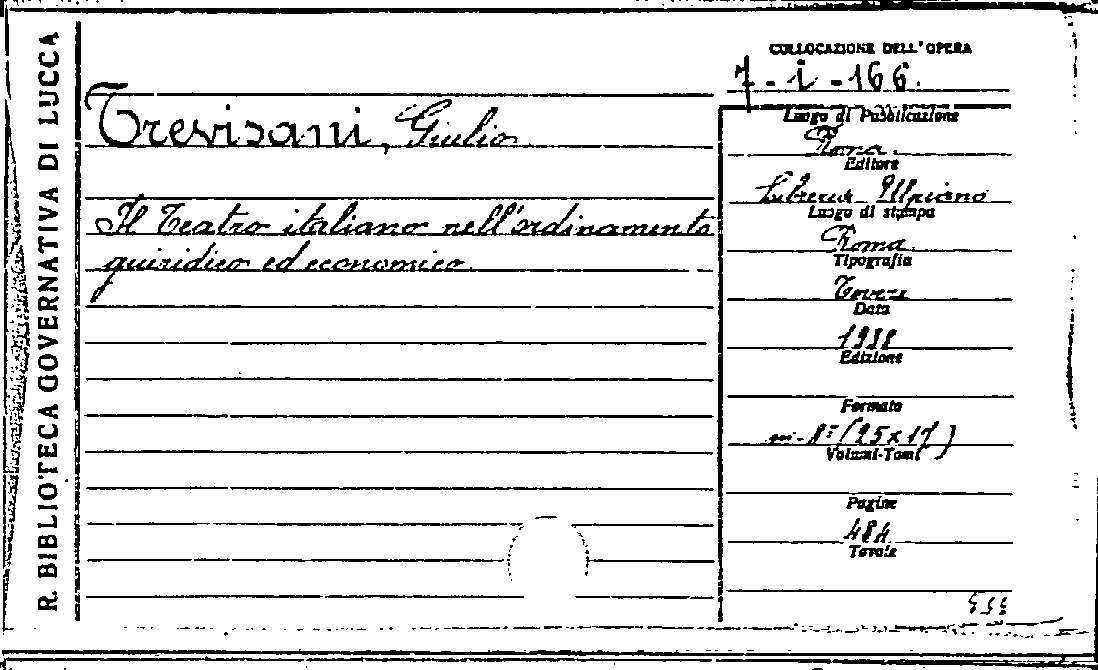 R. BIBLIOTECA GOVERNATIVA DI LUCCA
Trevisani, Giulio
Il Teatro italiano nell'ordinamento
giuridico ed economico
COLLOCAZIONE DELL'OPERA
7 - i - 166.
Luogo di Pubblicazione
Roma.
Editore
Libreria Ulpiano
Luogo di stampa
Roma
Tipografia
Data
1938
Edizione
Formato
in-8° (25 x 17)
Volumi-Tomi
Pagine
484
Tavole